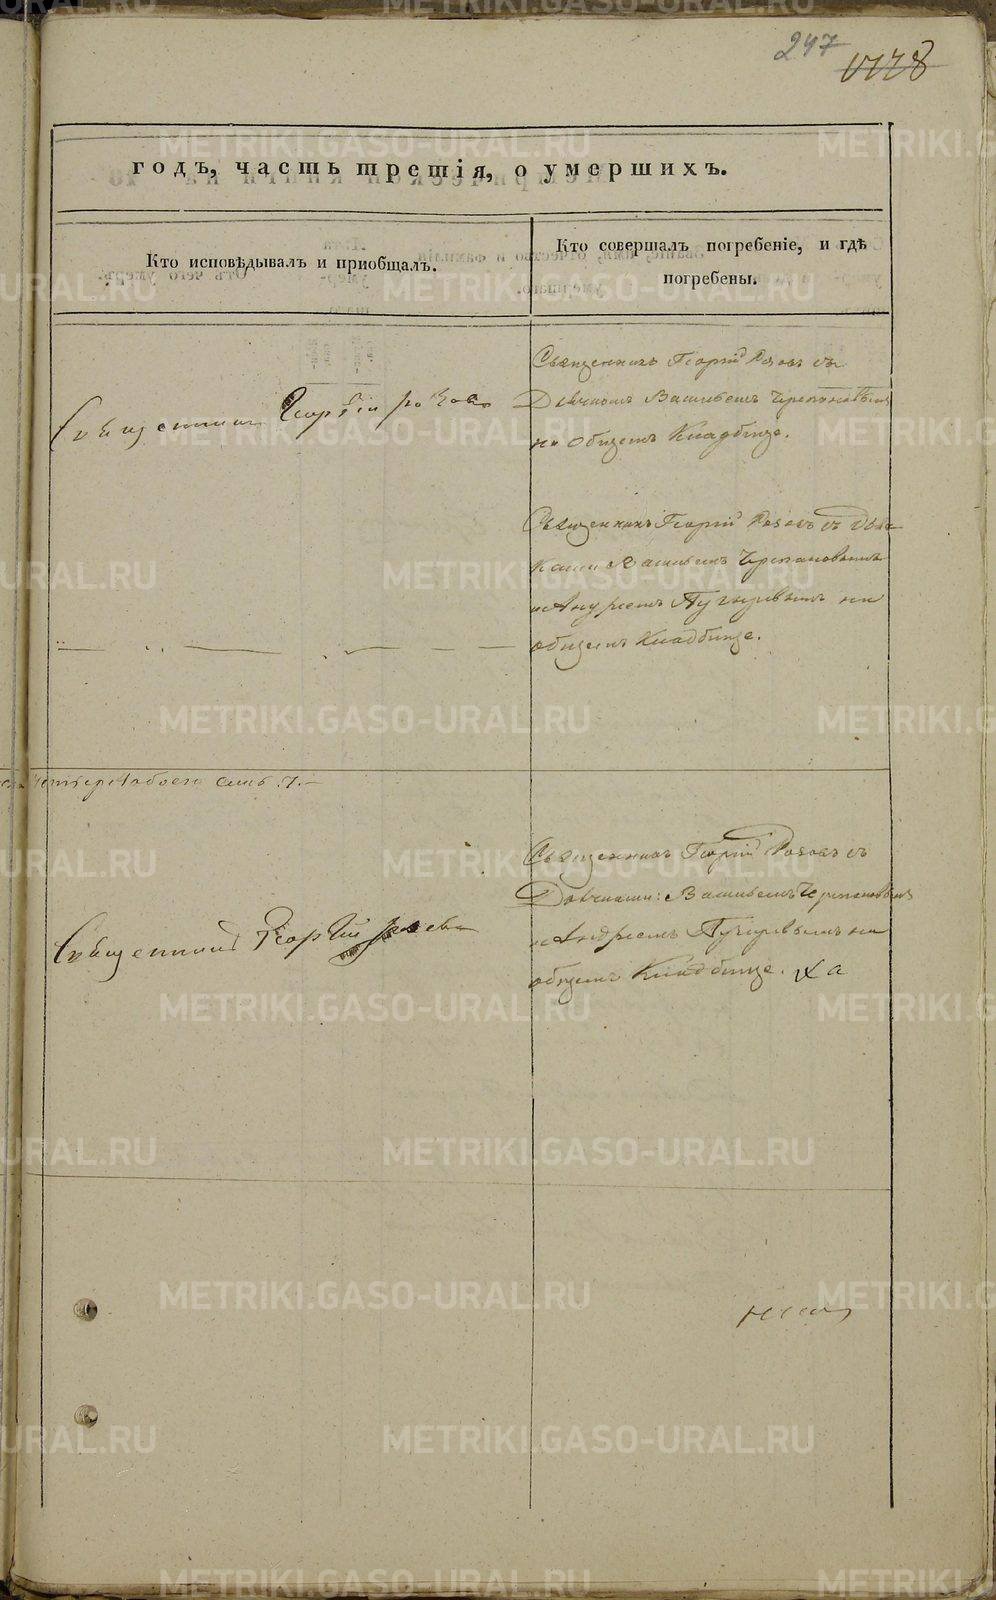 247
годъ, часть третія, о умершихъ.
Кто исповѣдывалъ и пріобщалъ.
Кто совершалъ погребеніе, и гдѣ
погребены.
Священникъ Георгій Розовъ
Священникъ Георгій Розовъ съ
Дьячкомъ Васильемъ Черепановымъ
на общемъ Кладбище.
Священникъ Георгій Розовъ съ Дьяч-
ками Васильемъ Черепановымъ
и Андреемъ на
общемъ Кладбище.
Священникъ Георгій Розовъ
Священникъ Георгій Розовъ съ
Дьячками: Васильемъ Черепановымъ
и Андреемъ на
общемъ Кладбище.
METRIKI.GASO-URAL.RU